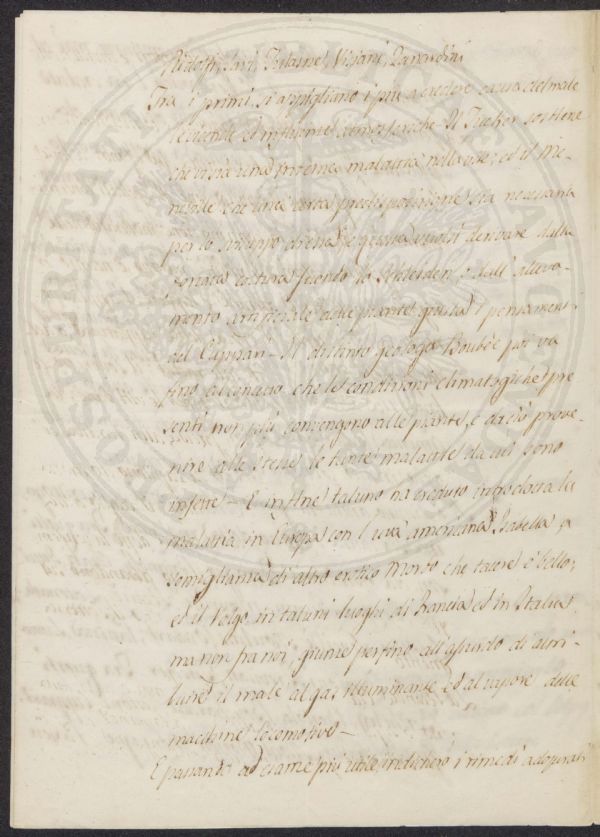 Ridolfi, Savi, Visiani, Zanardini
Tra i primi si appigliano i più a credere causa del male
le vicende ed influenze atmosferiche. Il sostiene
che vi sia una interna malattia nella vite; ed il Me-
neghi che una certa predisposizione sia necessaria
per lo sviluppo di essa, e questa vuolsi derivare dalla
coltura secondo lo o dall' alleva-
mento artificiale delle piante giusta i pensamenti
del – Il distinto geologo Boubèe poi va
fino ad che le condizioni climatologiche pre
senti non più convengono alle piante, e da ciò prove-
nire alle stesse le tante malattie da cui sono
infette – E infine taluno ha creduto introdotta la
malattia in Europa con l'uva americana Isabella, a
somiglianza di altro esotico morbo che tacere è bello;
ed il volgo in taluni luoghi di Francia ed in Italia
ma non fra noi, giunse perfino all'assurdo di attri-
buire il male al gas illuminante ed al vapore delle
macchine locomotive –
E passando ad esame più utile indicherò i rimedi adoperati
PROSPERITATI PUBLICAE AUGENDAE